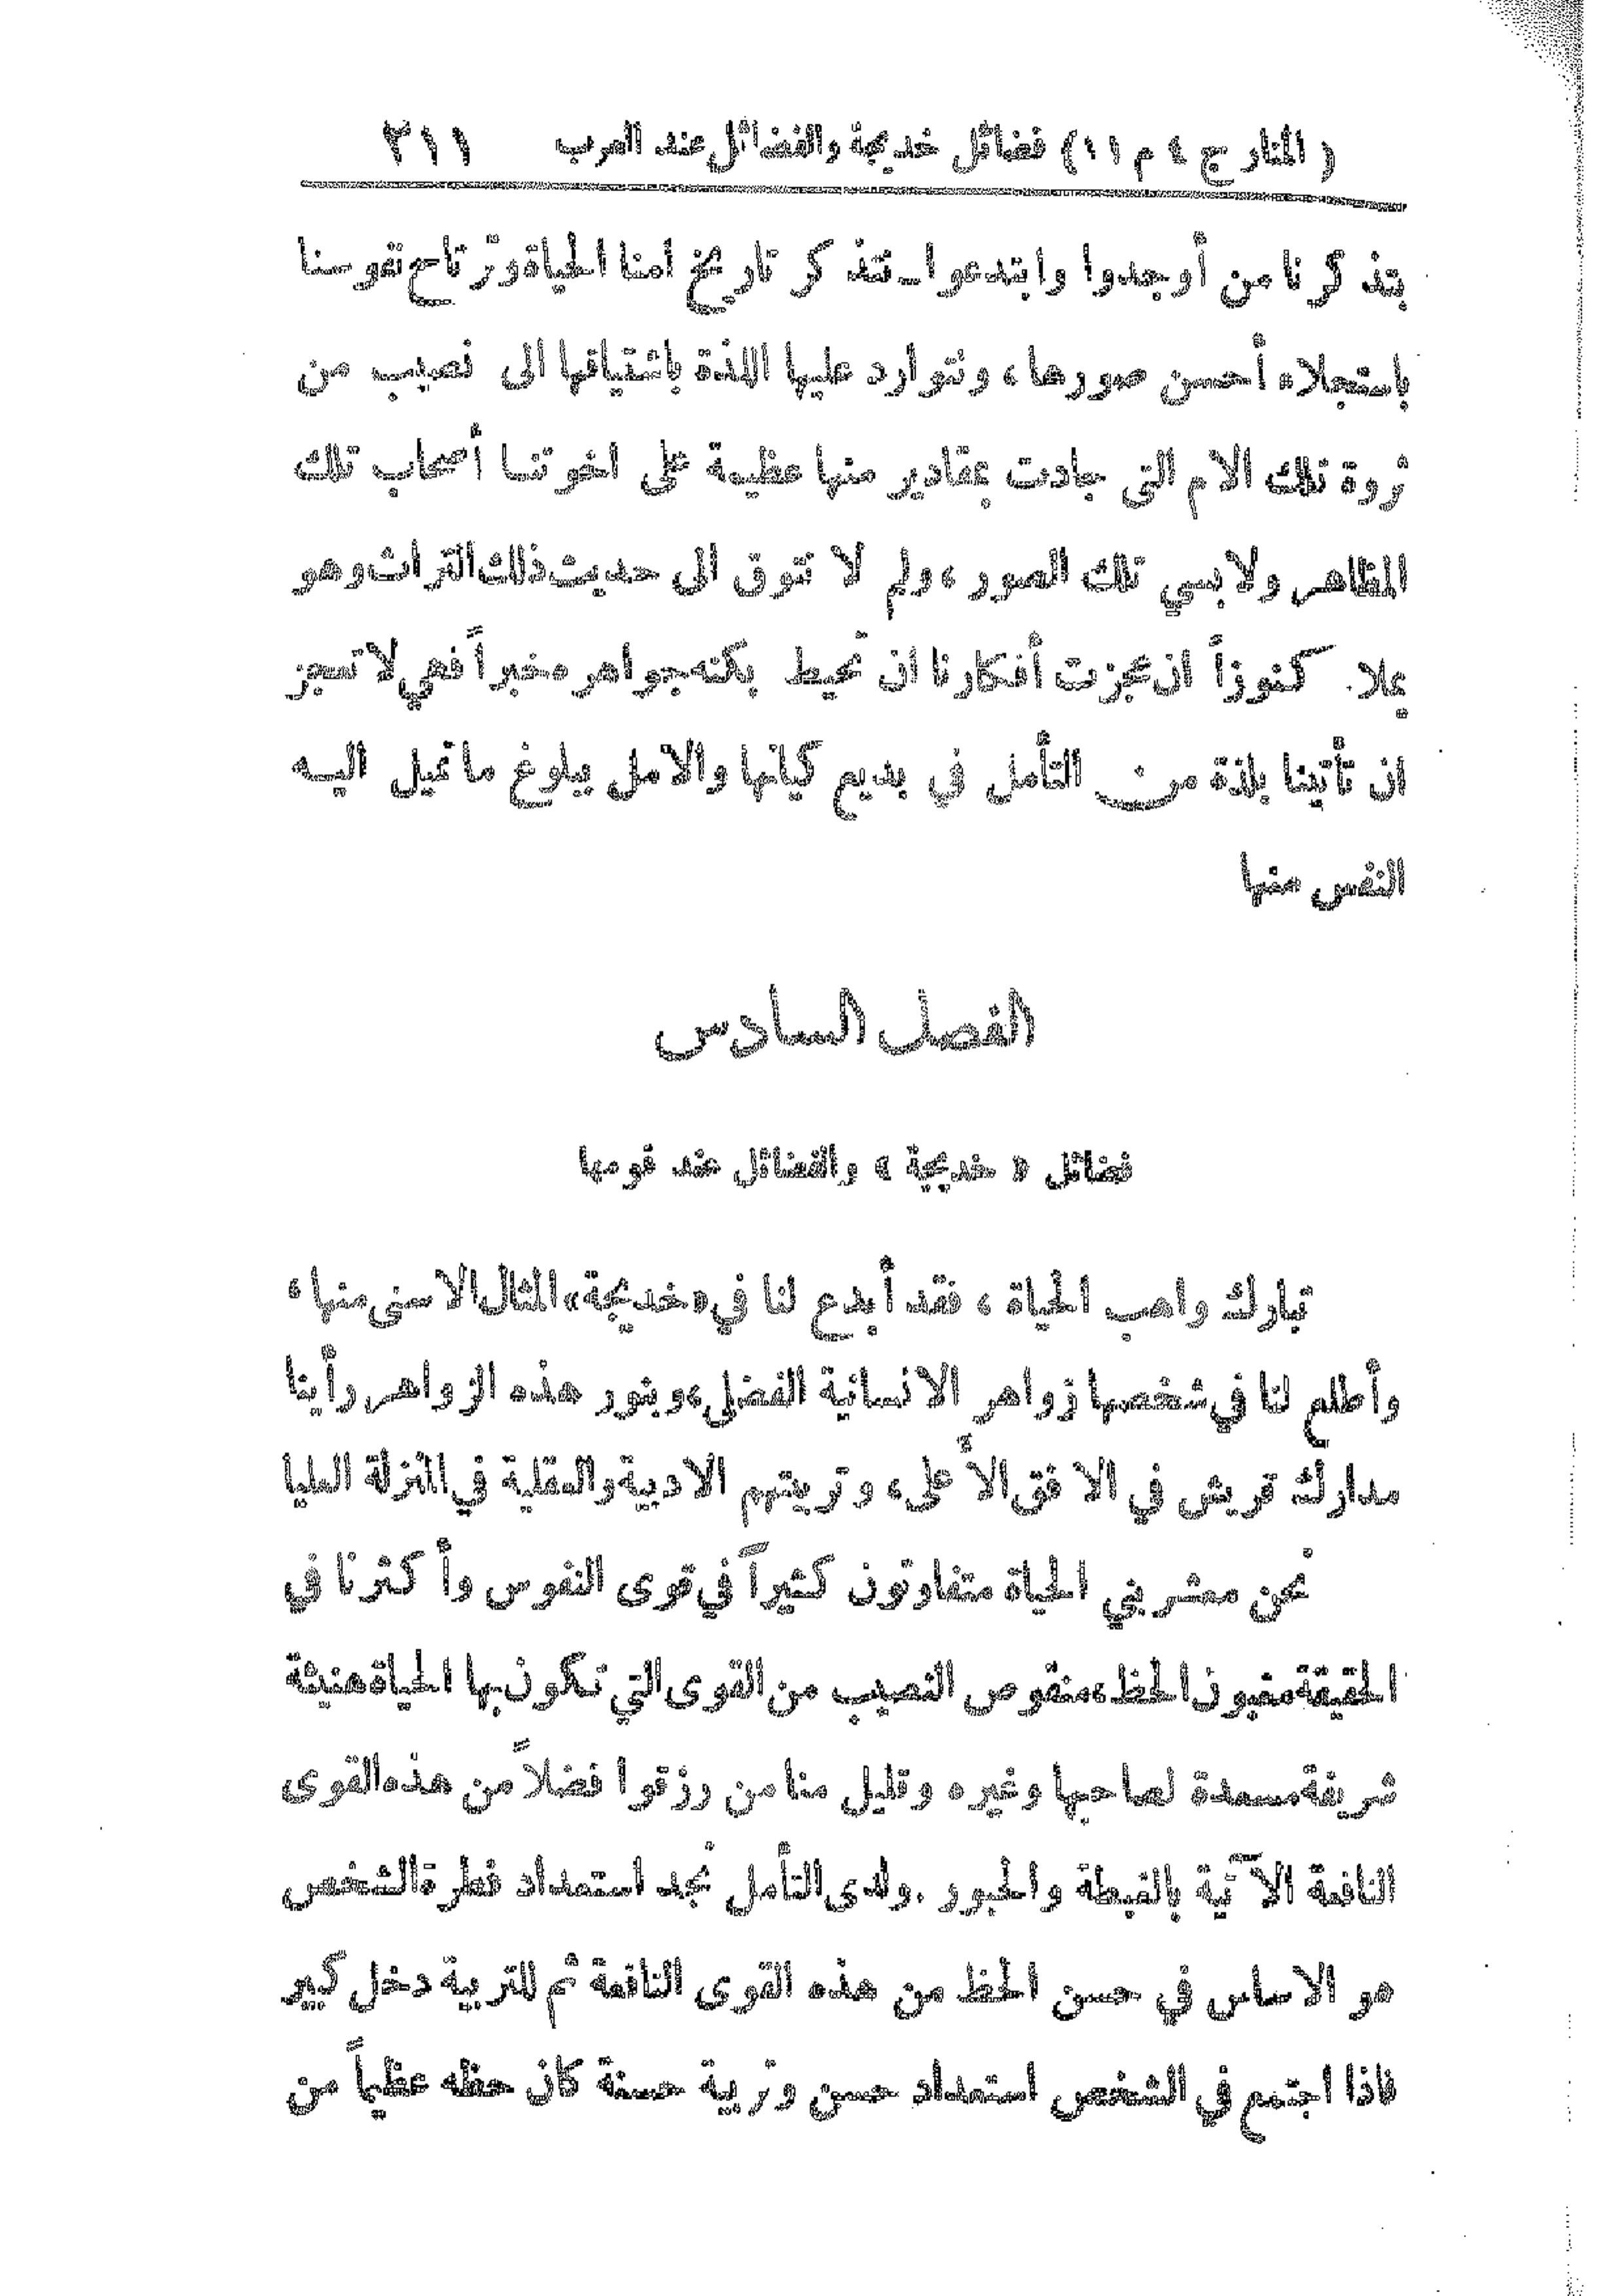 ( المنار ج ٤ م ١١ ) فضائل خديجة والفضائل عند العرب ٣١١
بتذكرنا من أوجدوا وابتدعوا ــ نتذكر تاريخ امنا الحياة وترتاح نفوسنا
باستجلاء أحسن صورها ، وتتوارد عليها اللذة باشتياقها الى نصيب من
ثروة تلك الام التي جادت بمقادير منها عظيمة على اخوتنا أصحاب تلك
المظاهر ولابسي تلك الصور ، ولم لا نتوق الى حديث ذلك التراث وهو
يملا كنوزاً ان عجزت أفكارنا ان تحيط بكنه جواهره خبراً فهي لا تعجز
ان تأتينا بلذة من التأمل في بديع كيانها والامل ببلوغ ما تميل اليه
النفس منها
الفصل السادس
فضائل « خديجة » والفضائل عند قومها
تبارك واهب الحياة ، فقد أبدع لنا في « خديجة » المثال الاسنى منها ،
وأطلع لنا في شخصها زواهر الانسانية الفضلى ، وبنور هذه الزواهر رأينا
مدارك قريش في الافق الأعلى ، وتربيتهم الادبية والعقلية في المنزلة العليا
نحن معشر بني الحياة متفاوتون كثيراً في قوى النفوس وأكثرنا في
الحقيقة مغبون الحظ ، منقوص النصيب من القوى التي تكون بها الحياة هنيئة
شريفة مسعدة لصاحبها وغيره وقليل منا من رزقوا فضلاً من هذه القوى
النافعة الآتية بالغبطة والحبور . ولدى التأمل نجد استعداد فطرة الشخص
هو الاساس في حسن الحظ من هذه القوى النافعة ثم للتربية دخل كبير
فاذا اجتمع في الشخص استعداد حسن وتربية حسنة كان حظه عظيماً من